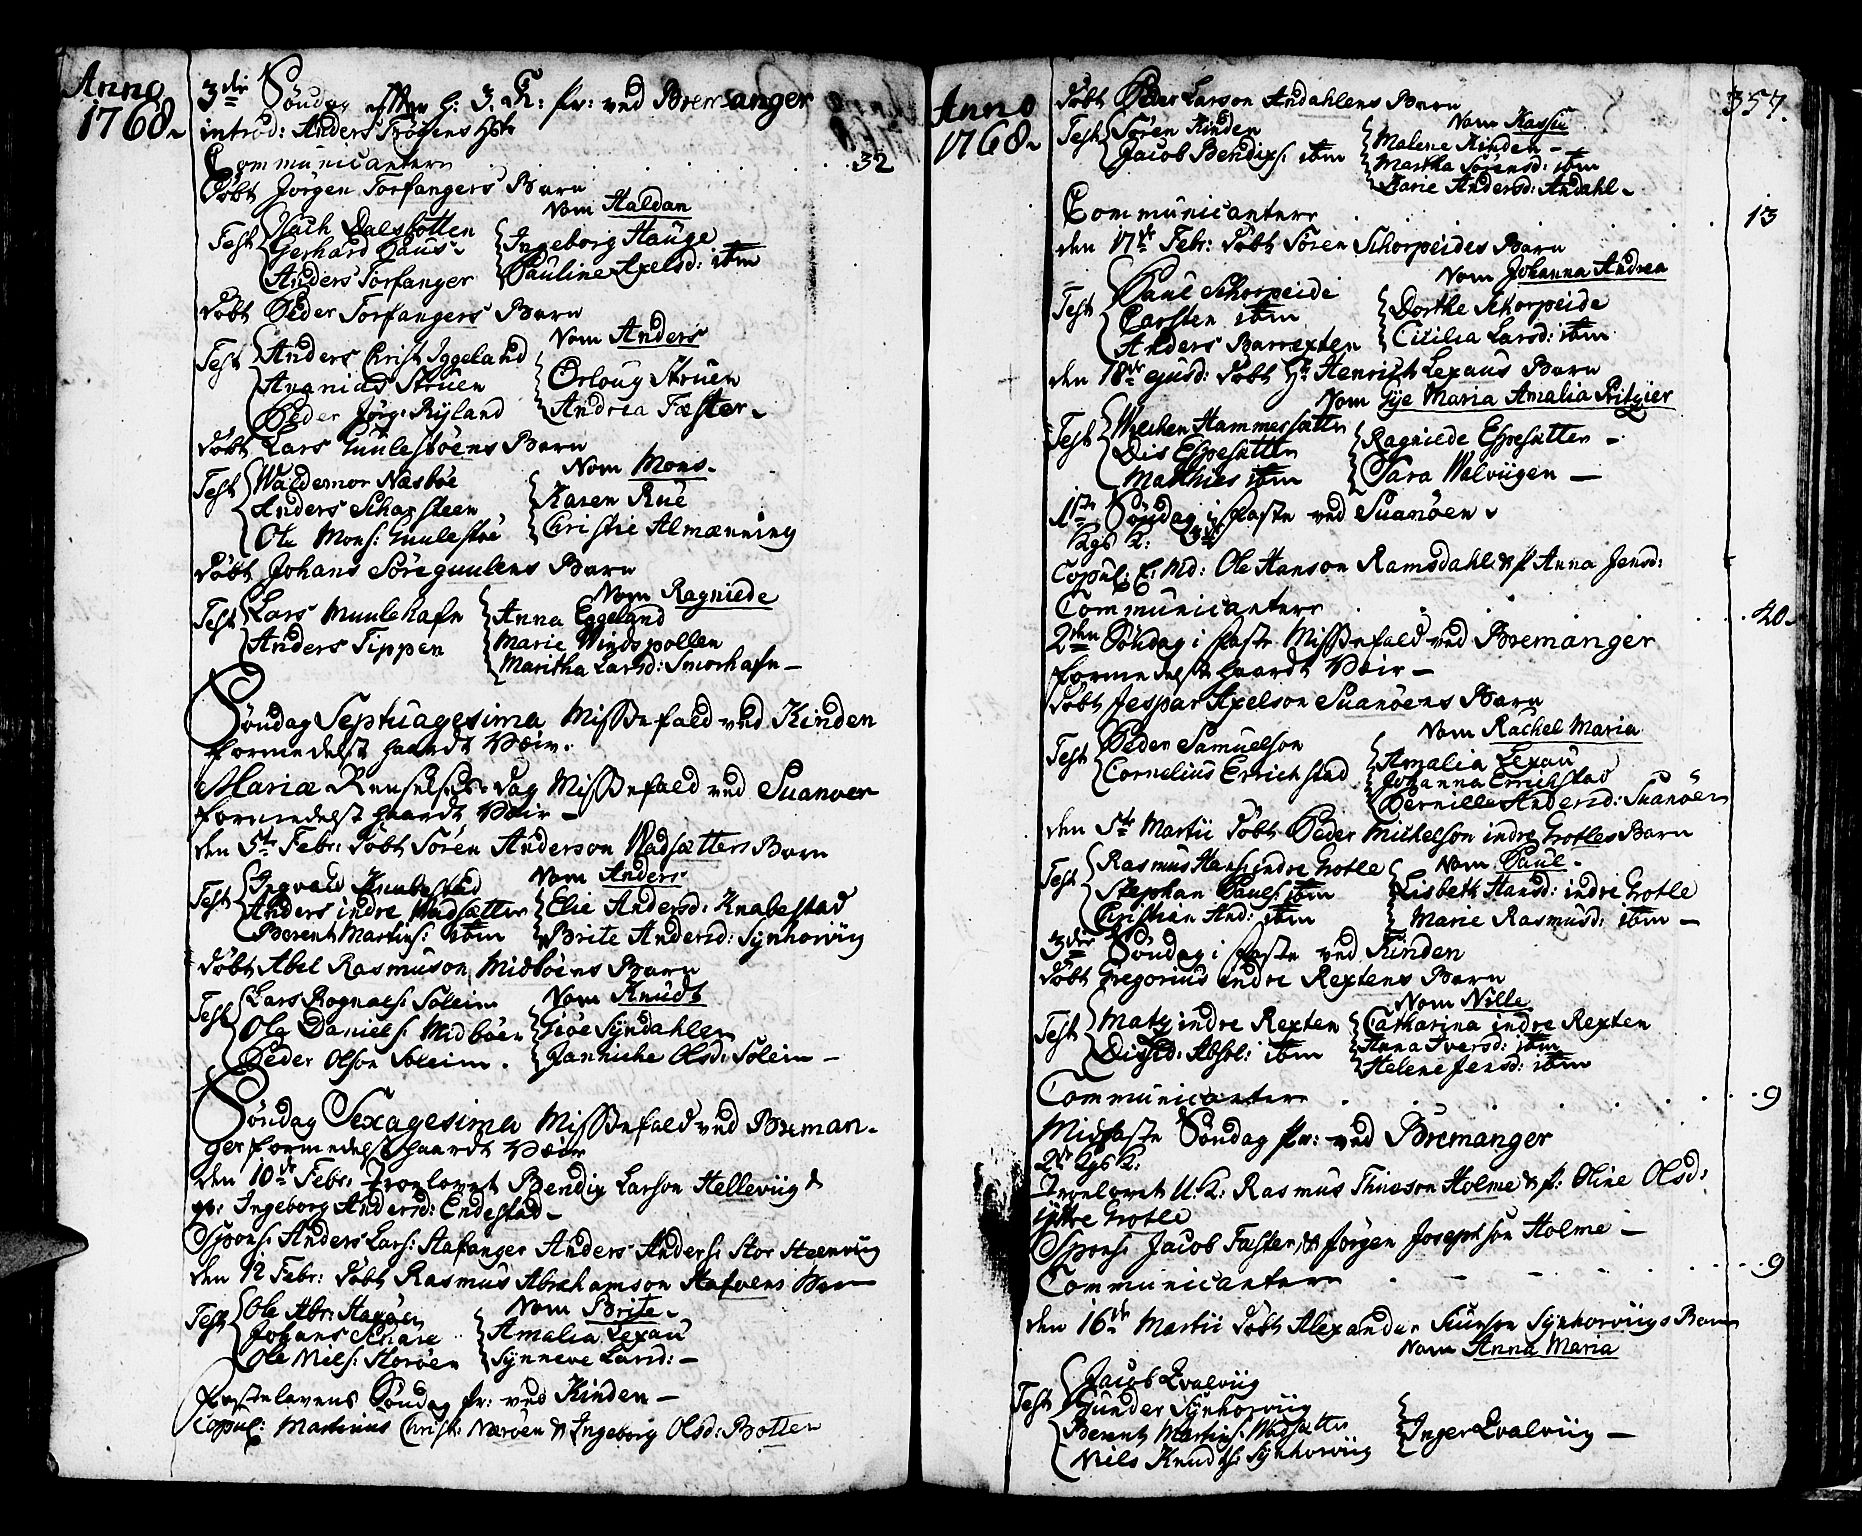 Anno
1768
3die Søndag efter H: 3. K: Pr: ved Bremanger
introd: Anders Hstr
Communicantere . . . 32
Døbt Jørgen Torfangers Barn
Nom Haldan
Test Dalsbotten
Gerhard
Anders Torfanger
Ingeborg Hauge
Pauline Axelsd: ibm
Døbt Peder Torfangers Barn
Nom Anders
Test Anders Christ Iggeland
Ananias Struen
Peder Jörg: Ryland
Orloug Struen
Andrea Fæster
Døbt Lars Guulesbøens Barn
Nom Mons
Test Waldemor Næsbøe
Anders Scharsteen
Ole Mons: Guulesbøe
Karen Rue
Christie Almænning
Døbt Johans Söreguulens Barn
Nom Ragniede
Test Lars Muulehafn
Anders Tippen
Anna Eggeland
Marie Windspollen
Maritha Larsd: Smorhafn
Søndag Septuagesima Missefald ved Kinden
formedelst haardt Væir
Mariæ Renselses Dag Missefald ved Suanøer
formedelst haardt Væir
den 5te Febr: døbt Sören Anderson Wadsætters Barn
Nom Anders
Test Ingvald Knabestad
Anders indre Wadsætter
Berent Martins: ibm
Elie Andersd: Knabestad
Brite Andersd: Synhorviig
døbt Abel Rasmuson Midbøens Barn
Nom Knudt
Test Lars Rognals: Soleim
Ole Daniels: Midbøen
Peder Olson Soleim
Giøe Syndahlen
Jannicke Olsd: Solein
Søndag Sexagesima Missefald ved Breman-
ger formedelst haardt Væir
den 10de Febr: Troelovet Bendix Larson Helleviig &
p: Ingeborg Andersd: Endestad
Spons: Anders Lars: Stafanger Anders Anders: Stor Steenviig
den 12 Febr: døbt Rasmus Abrahamson Hafvens Barn
Nom Brite
Test Ole Abr: Havøen
Johans Schare
Ole Niels: Storøen
Amalia Lexau
Synneve Larsd:
Fastelavens Søndag Pr: ved Kinden
Copul: Martinus Christ: Nærøen & Ingeborg Olsd: Botten
Anno
1768
357.
døbt Peder Larson Andahlens Barn
Nom Kassie
Test Sören Kinden
Jacob Bendixs: ibm
Malene Kinden
Martha Sörensd: ibm
Marie Andersd: Andahl
Communicantere . . . 13
den 17de Febr: døbt Sören Schorpeides Barn
Nom Johanna Andrea
Test Paul Schorpeide
Carsten ibm
Anders Barrexten
Dorthe Schorpeide
Cicilia Larsd: ibm
den 18de ejusd: døbt Hr Henrich Lexaus Barn
Nom Gye Maria Amalia Pritzier
Test Wechen Hammersætter
Dis Espesætter
Matthies ibm
Ragniede Espesætter
Sara Walviigen
1ste Søndag i Faste ved Suanøen
Copul: E: Md: Ole Hanson Ramsdahl & P Anna Jensd:
Communicantere . . . 20
2den Søndag i Faste Missefald ved Bremanger
formedelst haardt Vær
døbt Jespar Axelson Suanøens Barn
Nom Rachel Maria
Test Peder Samuelson
Cornelius Errichstad
Amalia Lexau
Johanna Errichstad
Pernille Andersd: Suanøen
den 5te Martii døbt Peder Michelson indre Grotles Barn
Nom Paul
Test Rasmus Hans: indre Grotle
Stephan Pauls: ibm
Christian And: ibm
Lisbeth Hansd: indre Grotle
Marie Rasmusd: ibm
3die Søndag i Faste ved Kinden
døbt Gregorius indre Rextens Barn
Nom Nille
Test Matz indre Rexten
Absol: ibm
Catharina indre Rexten
Anna Iversd: ibm
Helene Jensd: ibm
Communicantere . . . 9
Midfaste Søndag Pr: ved Bremanger
Troelovet U: K: Rasmus Thueson Holme & P: Oline Olsd:
ijttre Grotle
Spons: Jacob Fæster, & Jørgen Josephson Holme
Communicantere . . . 9
den 16de Martii døbt Alexander Synhorviigs Barn
Nom Anna Maria
Test Jacob Qvalviig
Gunder Synhorviig
Berent Martins: Wadsætter
Niels Knuds: Synhorviig
Inger Qvalviig